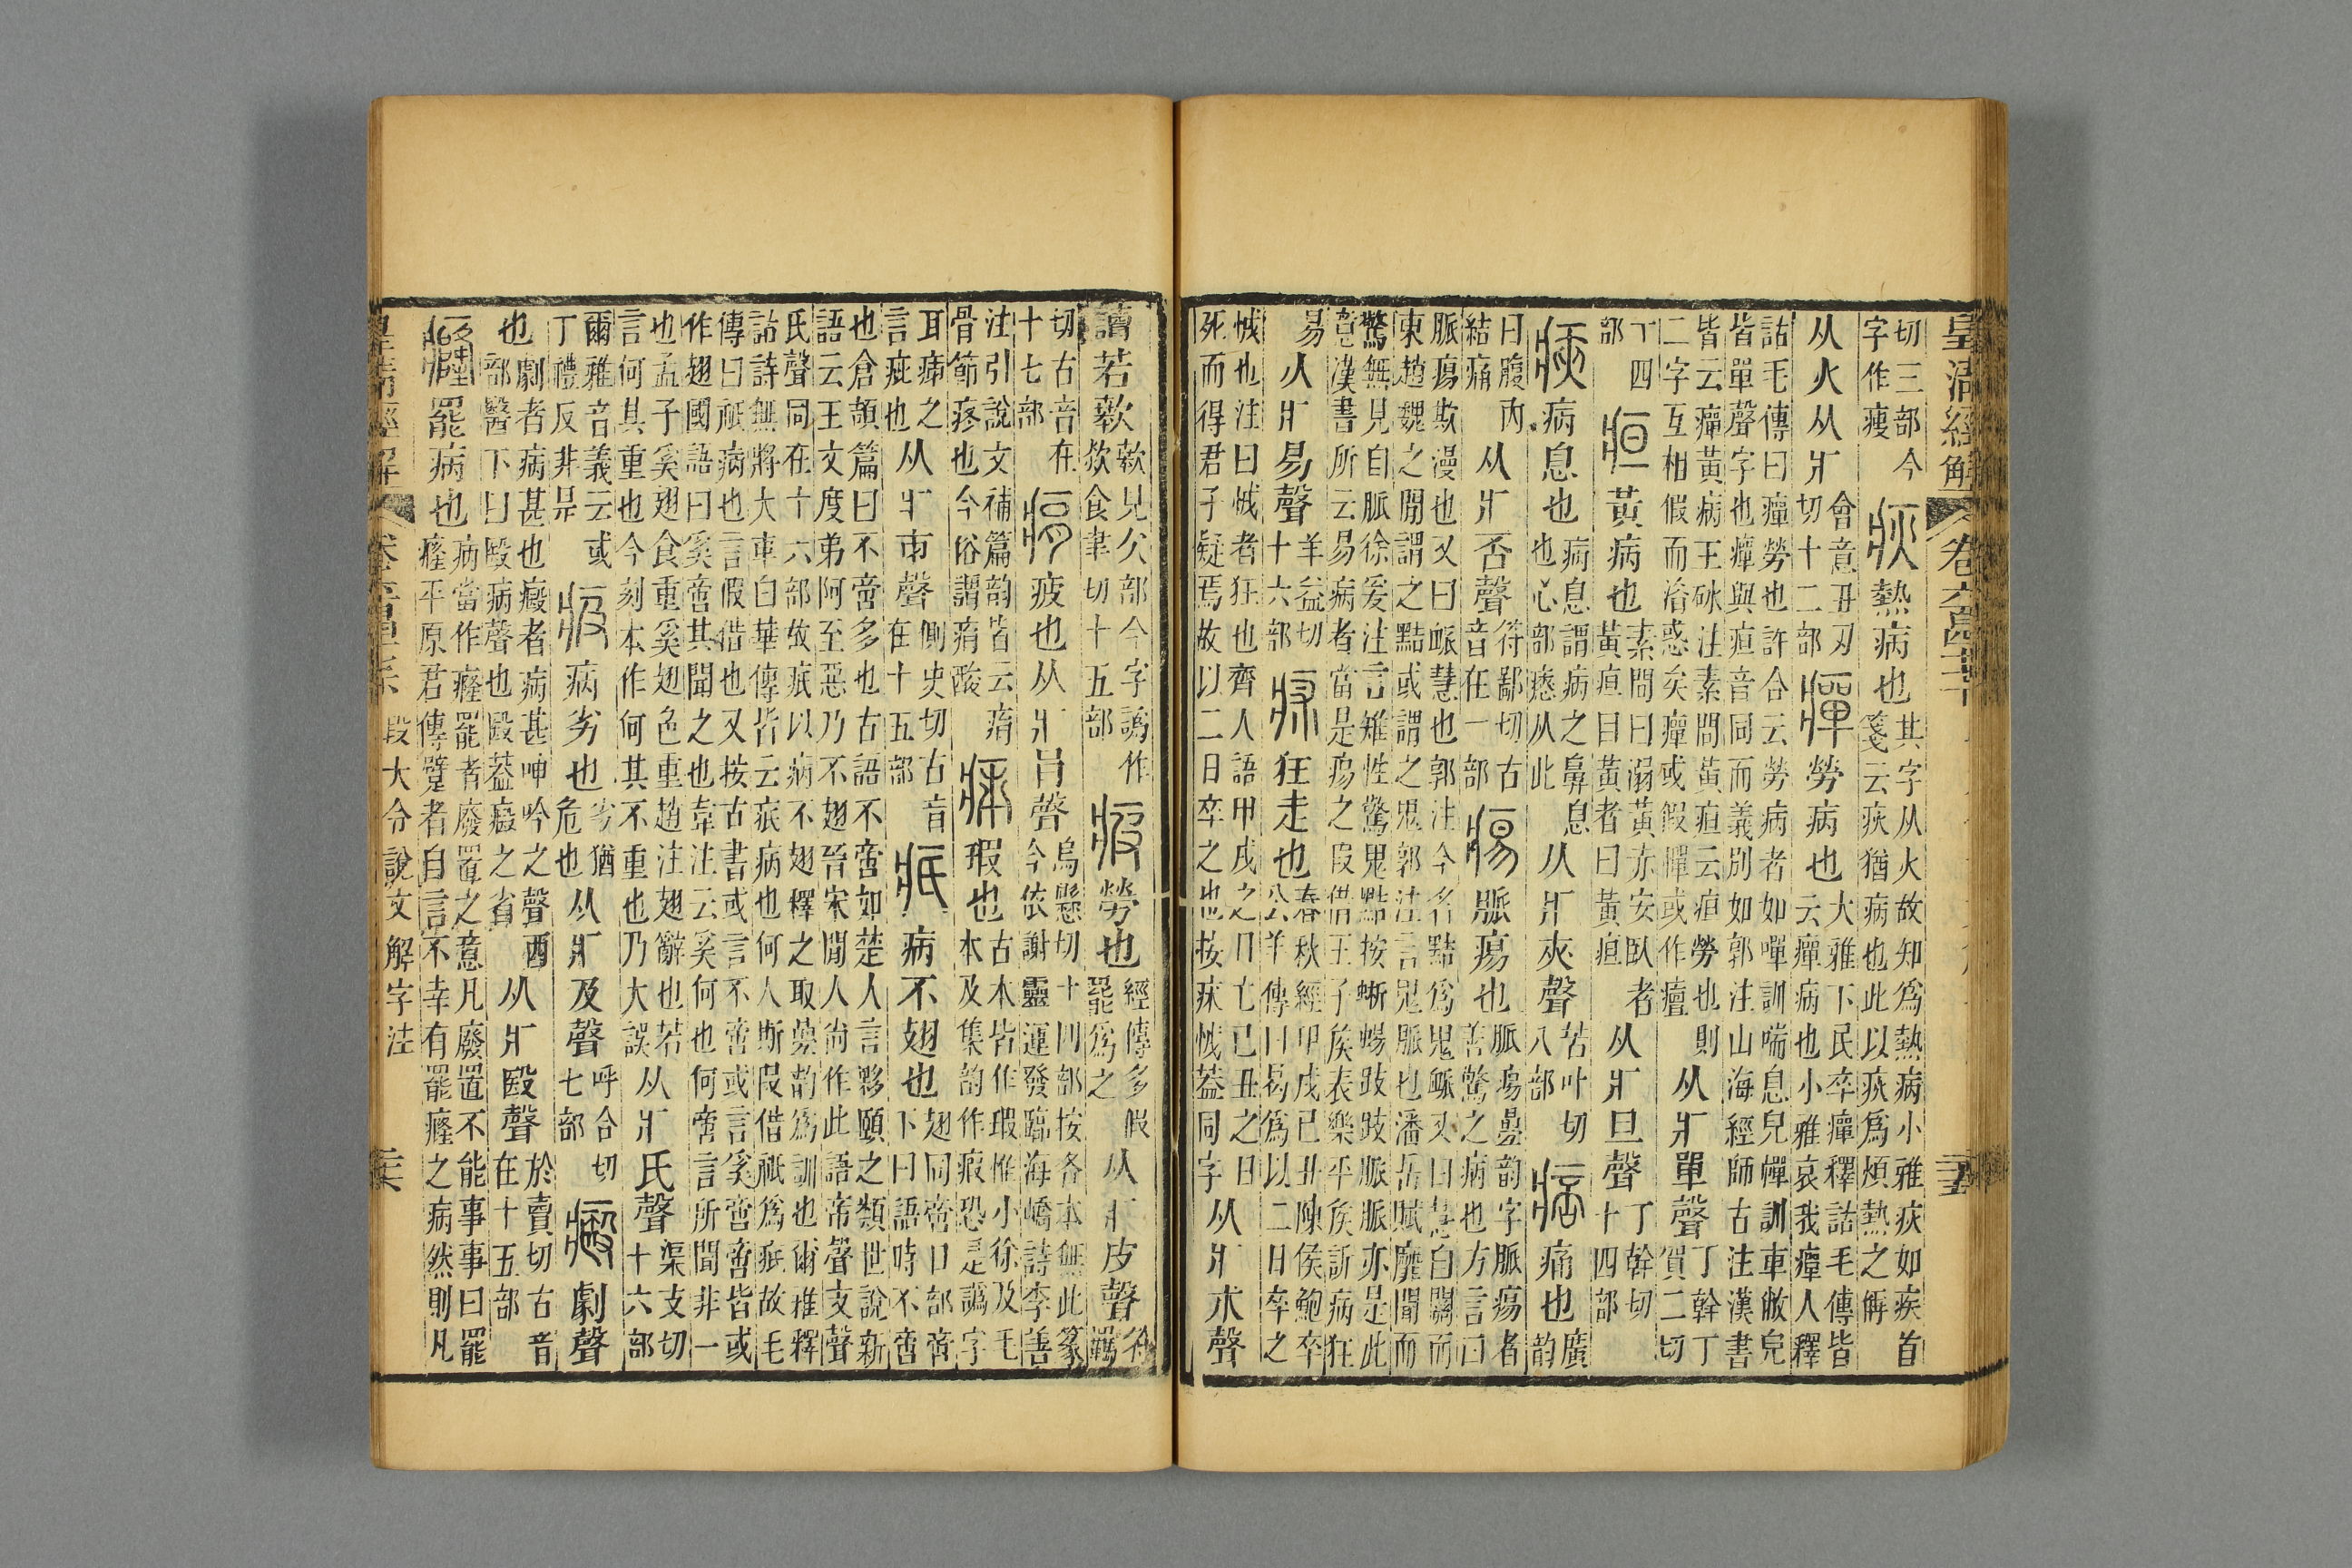 皇清經解
切三部今字作瘦 疢 熱病也 其字从火故知爲熱病小雅疢如疾首箋云疢猶病也此以疢爲煩熱之解
从火从疒 會意丑刃切十二部 癉 勞病也 大雅下民卒癉釋詁毛傳皆云癉病也小雅哀我癉人釋
詁毛傳曰癉勞也許合云勞病者如嘽訓喘息皃幝訓車敝皃皆單聲字也癉與疸音同而義別如郭注山海經師古注漢書
皆云癉黃病王砅注素問黃疸云疸勞也則二字互相假而淆惑矣癉或假憚或作 从疒單聲 丁幹丁賀二切
十四部 疸 黃病也 素問曰溺黃赤安臥者黃疸目黃者曰黃疸 从疒旦聲 丁幹切十四部
㾜 病息也 病息謂病之鼻息也心部瘱从此 从疒夾聲 苦叶切八部 痞 痛也 廣韵
曰腹內結痛 从疒否聲 符鄙切古音在一部 𤶈 脈瘍也 脈瘍曡韵字脈瘍者善驚之病也方言曰
脈瘍欺漫也又曰䘑慧也郭注今名黠爲鬼䘑又曰慧自關而東趙魏之閒謂之黠或謂之鬼郭注言鬼脈也潘岳賦靡聞而
驚無見自脈徐爰注言雉性驚鬼黠按蜥蜴跂跂脈脈亦是此意漢書所云易病者當是瘍之叚借王子矦表樂平矦訢病狂
易 从疒易聲 羊益切十六部 𤵜 狂走也 春秋經甲戌己丑陳侯鮑卒公羊傳曰曷爲以二日卒之
怴也注曰怴者狂也齊人語甲戌之日亡己丑之日死而得君子疑焉故以二日卒之也按𤵜怴葢同字 从疒朮聲
讀若欻 欻見欠部今字譌作欻食聿切十五部 疲 勞也 經傳多假罷爲之 从疒皮聲 符羈
切古音在十七部 痟 疲也 从疒肙聲 烏懸切十四部按各本無此篆今依謝靈運發臨海嶠詩李善
注引說文補篇韵皆云痟骨節疼也今俗謂痟酸 㾁 瑕也 古本皆作瑕惟小徐及毛本及集韵作瘕恐是譌字
耳㾁之言疵也 从疒𠂔聲 側史切古音在十五部 疧 病不翅也 翅同啻口部啻下曰語時不啻
也倉頡篇曰不啻多也古語不啻如楚人言夥頤之類世說新語云王文度弟阿至惡乃不翅晉宋閒人尚作此語帝聲支聲
氏聲同在十六部故疧以病不翅釋之取曡韵爲訓也爾雅釋詁詩無將大車白華傳皆云疧病也何人斯叚借祇爲疧故毛
傳曰祇病也言假借也又按古書或言不啻或言奚啻啻皆或作翅國語曰奚啻其聞之也韋注云奚何也何啻言所聞非一
也孟子奚翅食重奚翅色重趙注翅辭也若言何其重也今刻本作何其不重也乃大誤 从疒氏聲 渠支切十六部
爾雅音義云或丁禮反非是 病劣也 劣猶危也 从疒及聲 呼合切七部 劇聲
也 劇者病甚也癥者病甚呻吟之聲酉部醫下曰殹病聲也殹葢之省 从疒殹聲 於賣切古音在十五部
癃 罷病也 病當作癃罷者廢置之意凡廢置不能事事曰罷癃平原君傳躄者自言不幸有罷癃之病然則凡
皇清經解 段大令說文解字注